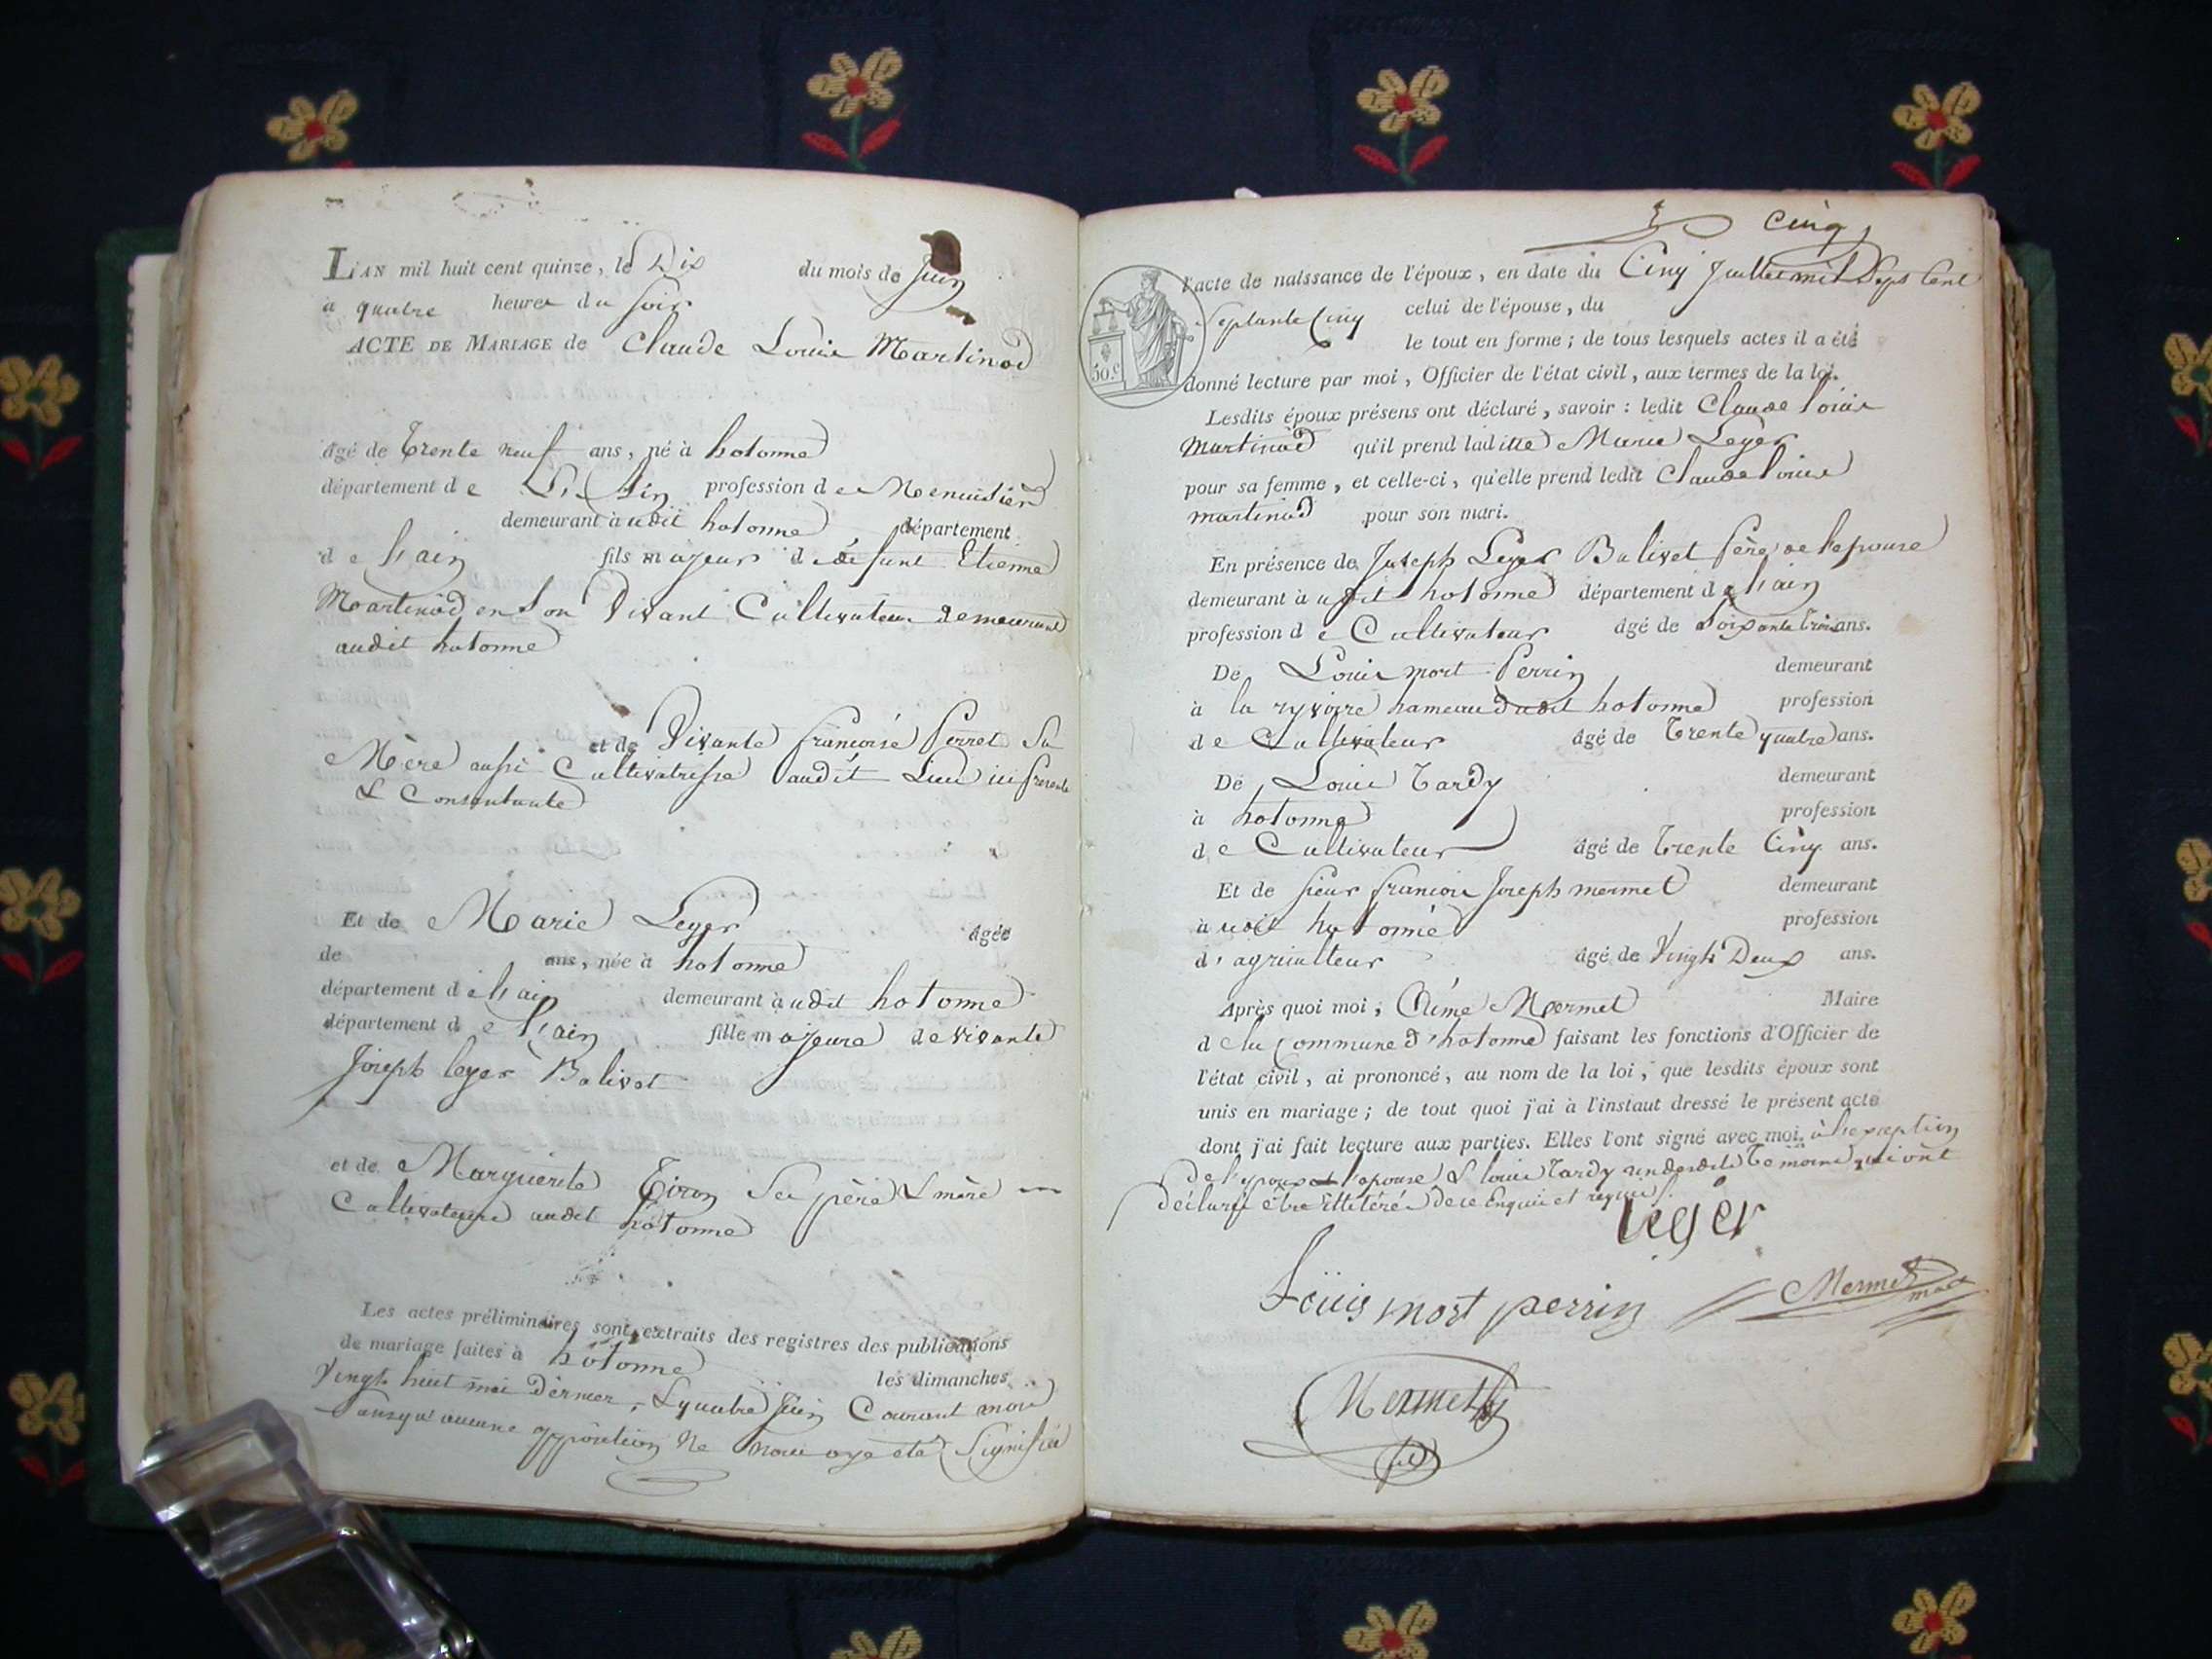 L'AN mil huit cent quinze, le Dix du mois de Juin
à quatre heures du soir
ACTE DE MARIAGE de Claude Louis Martinod
âgé de trente neuf ans, né à hotonne
département de L'ain profession de Menuisier
demeurant audit hotonne département
de l'ain fils majeur de défunt Etienne
Martinod en son Vivant Cultivateur demeurant
audit hotonne
et de Vivante françoise Perret Sa
Mère aussi Cultivatrisse audit Lieu ici presente
& Consentante
Et de Marie Leger âgée
de ans, née à hotonne
département de l'ain demeurant audit hotonne
département de l'ain fille majeure de vivante
Joseph leger Balivet
et de Marguerite Tiron Ses père & mère
Cultivateurs audit hotonne
Les actes préliminaires sont extraits des registres des publications
de mariage faites à hotonne les dimanches
Vingt huit mai Dernier, & quatre Juin Courant mois
sans qu'aucune opposition ne nous aye été Signifiée
cinq
l'acte de naissance de l'époux, en date du Cinq Juillet mil Sept Cent
Septante Cinq celui de l'épouse, du
le tout en forme; de tous lesquels actes il a été
50 c
donné lecture par moi, Officier de l'état civil, aux termes de la loi.
Lesdits époux présens ont déclaré, savoir: ledit Claude louis
Martinod qu'il prend laditte Marie Leger
pour sa femme, et celle-ci, qu'elle prend ledit Claude louis
martinod pour son mari.
En présence de Joseph Leger Balivet Père de l'epouse
demeurant audit hotonne département de l'ain
profession de Cultivateur âgé de Soixante trois ans.
De Louis mort Perrin demeurant
à la ryvoire hameau dudit hotonne profession
de Cultivateur âgé de trente quatre ans.
De Louis Tardy demeurant
à hotonne profession
de Cultivateur âgé de trente Cinq ans.
Et de sieur françois Joseph mermet demeurant
audit hotonne profession
d'agriculteur âgé de Vingt Deux ans.
Après quoi moi, Aimé Mermet Maire
de la Commune d'hotonne faisant les fonctions d'Officier de
l'état civil, ai prononcé, au nom de la loi, que lesdits époux sont
unis en mariage; de tout quoi j'ai à l'instant dressé le présent acte
dont j'ai fait lecture aux parties. Elles l'ont signé avec moi, à l'exception
de l'epoux et l'epouse & louis Tardy un desdits Temoins qui ont
déclaré être illitérés de ce Enquis et requis.
leger
Loüis mort perrin
Mermet
Mermet